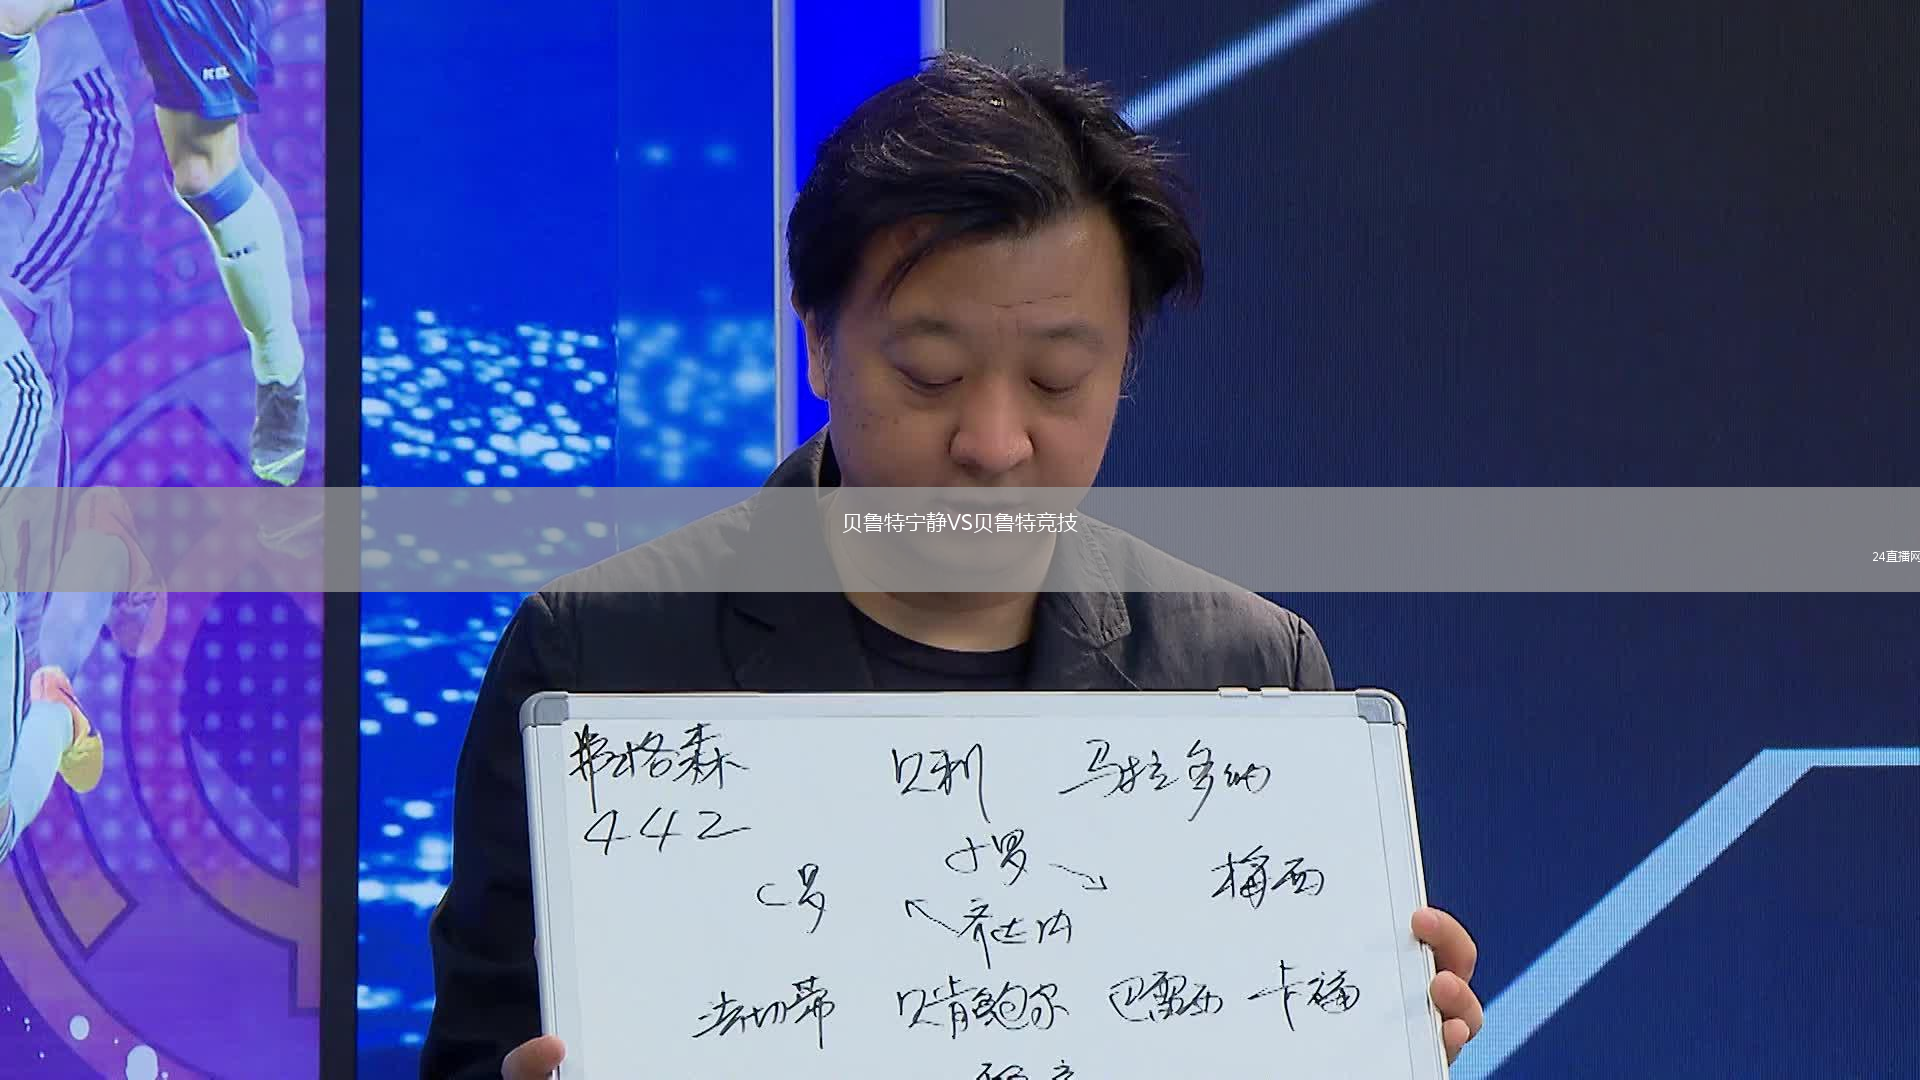 贝鲁特宁静VS贝鲁特竞技
24直播网
弗格森 贝利 马拉多纳
442
小罗
C罗 梅西
齐达内
法切蒂 贝肯鲍尔 巴雷西 卡福